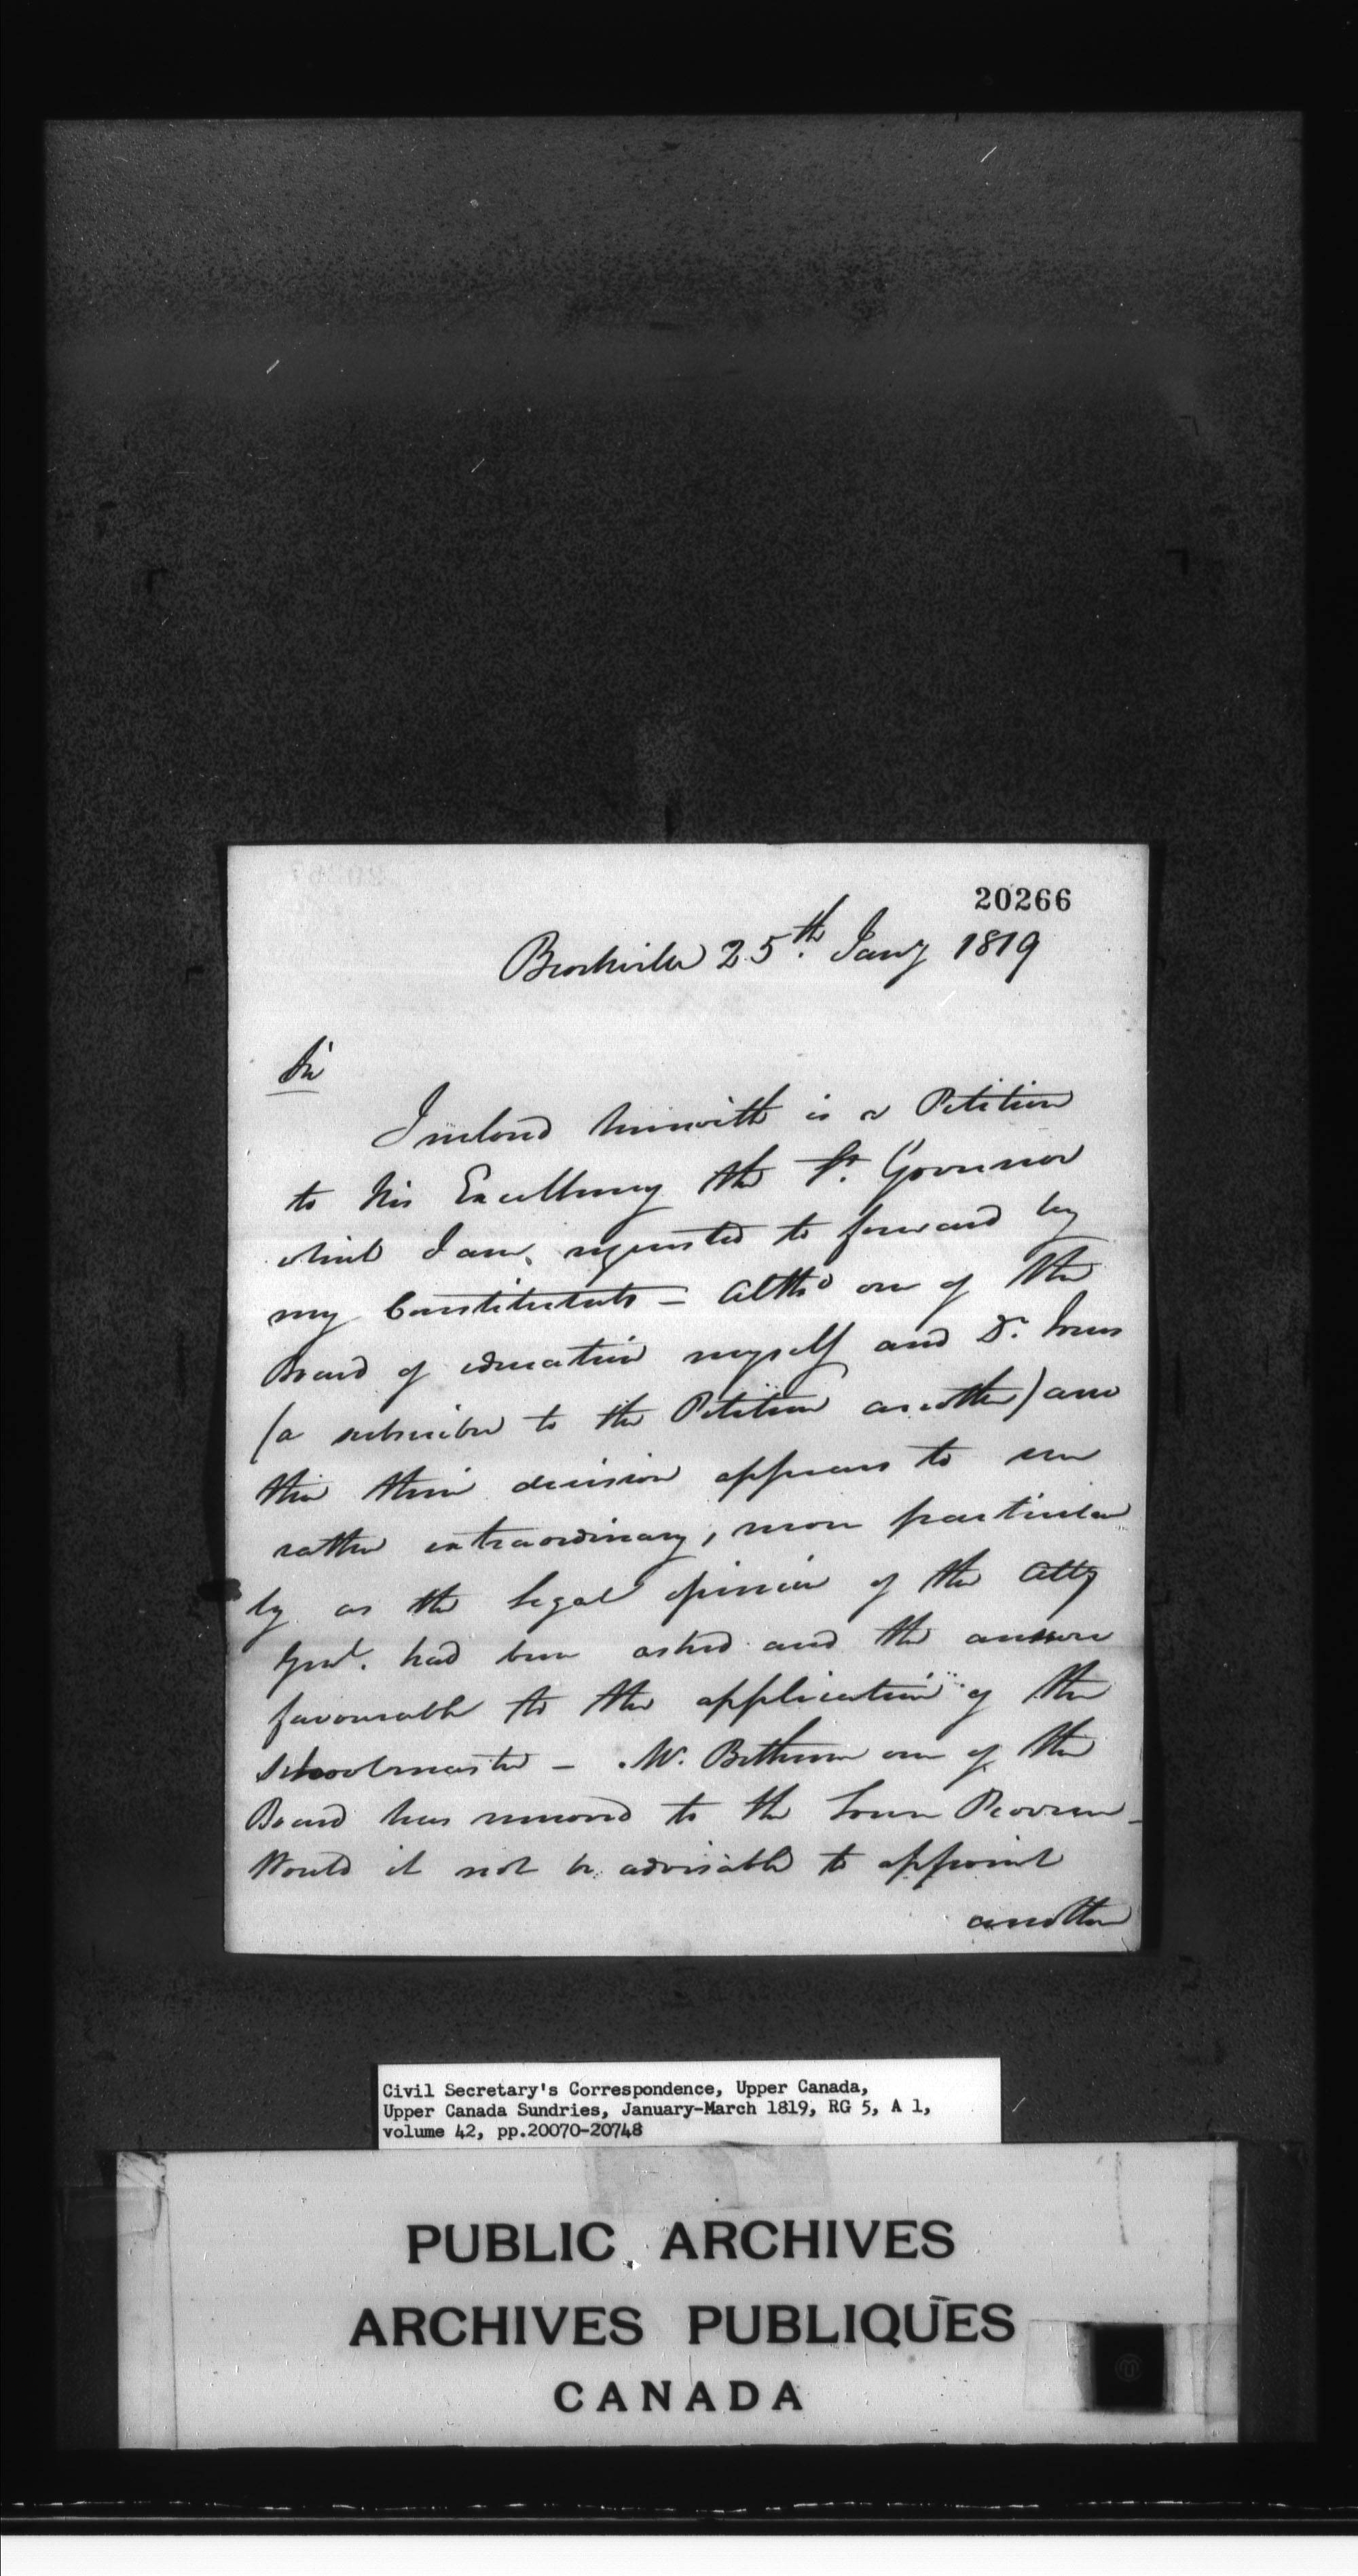 20266
Brockville 25th. Jany 1819
Sir
Inclosed herewith is a Petition
to his Excellency the Lt. Governor
which I am requested to forward by
my Constituents – Altho one of the
Board of education myself and Dr.
(a subscriber to the Petition another) and
this their decision appears to me
rather extraordinary, more particular
ly as the legal opinion of the Atty
Genl. had been asked and the answer
favourable to the application of the
Schoolmaster – Mr. Bethune one of the
Board has removed to the Lower Province –
Would it not be advisable to appoint
another
Civil Secretary's Correspondence, Upper Canada,
Upper Canada Sundries, January-March 1819, RG 5, A 1,
volume 42, pp.20070-20748
PUBLIC ARCHIVES
ARCHIVES PUBLIQUES
CANADA